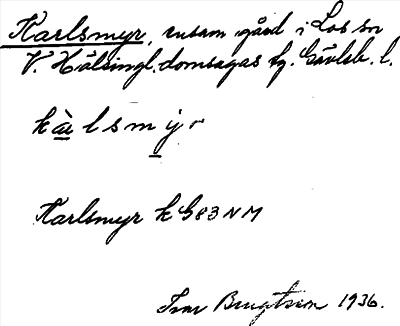 Karlsmyr, ensam gård i Los sn
V. Hälsingl. domsagas tg. Gävleb. l.
kàlsmỳr
Karlsmyr k G83NM
Ivar Bengtsson 1936.